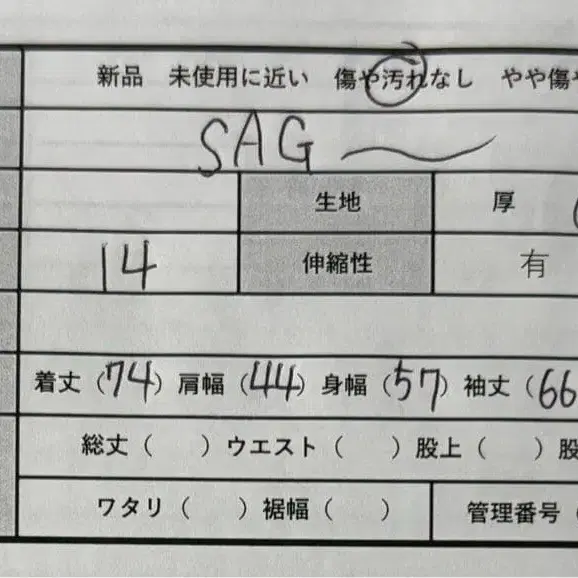 新品 未使用に近い 傷や汚れなし やや傷や
SAG
生地 厚
14 伸縮性 有
着丈（74）肩幅（44）身幅（57）袖丈（66
総丈（ ）ウエスト（ ）股上（ ）股
ワタリ（ ）裾幅（ ） 管理番号（